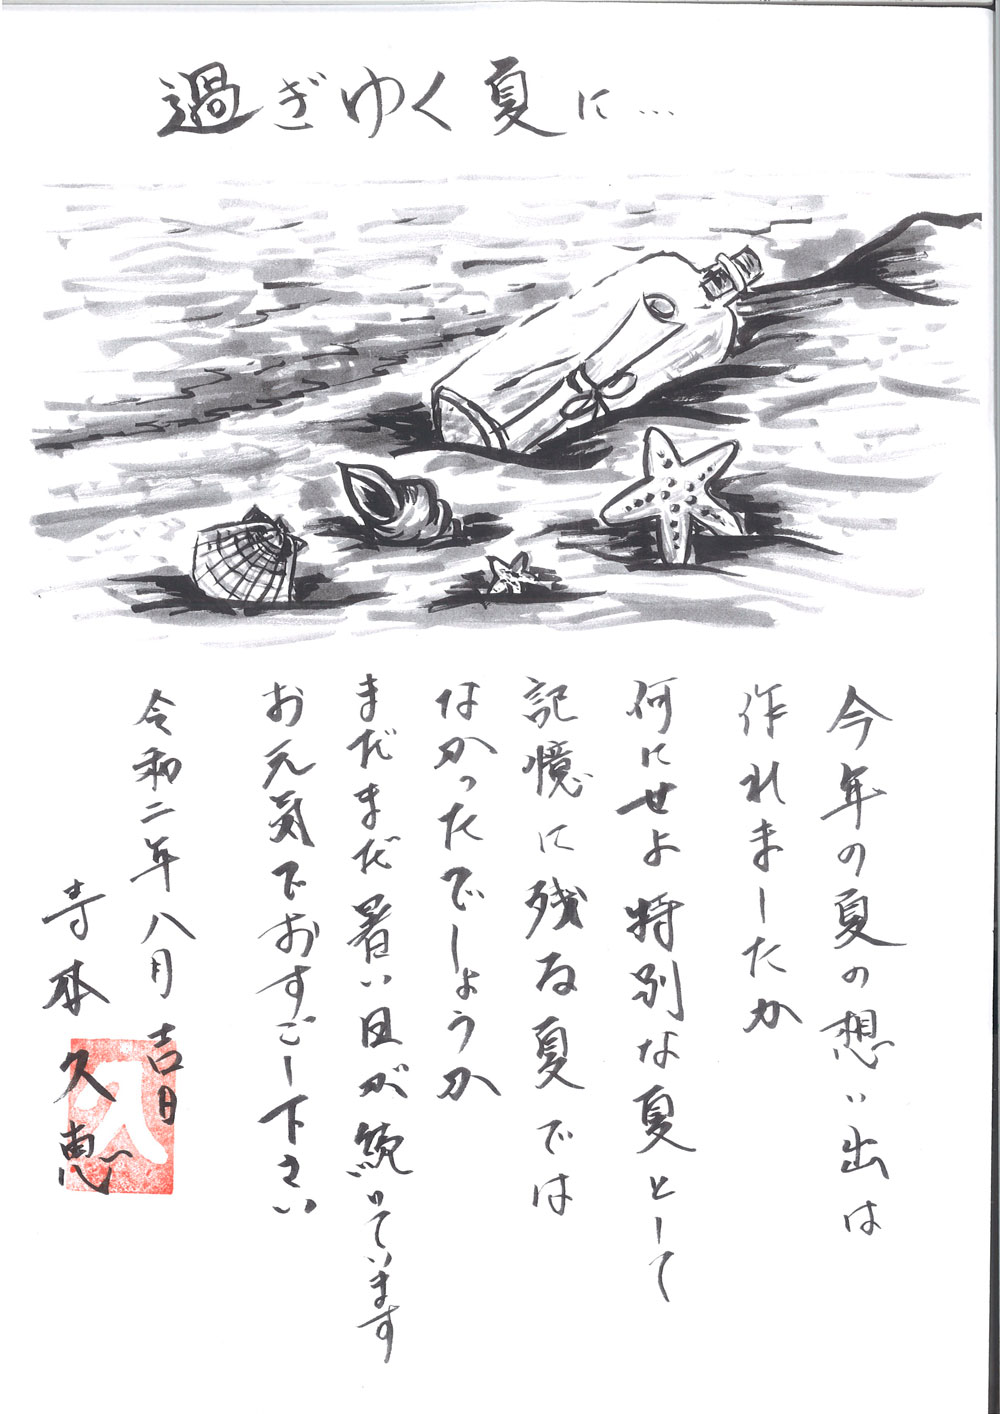 過ぎゆく夏に…
今年の夏の想い出は
作れましたか
何にせよ特別な夏として
記憶に残る夏では
なかったでしょうか
まだまだ暑い日が続いています
お元気でおすごし下さい
令和二年八月吉日
寺本久恵
久